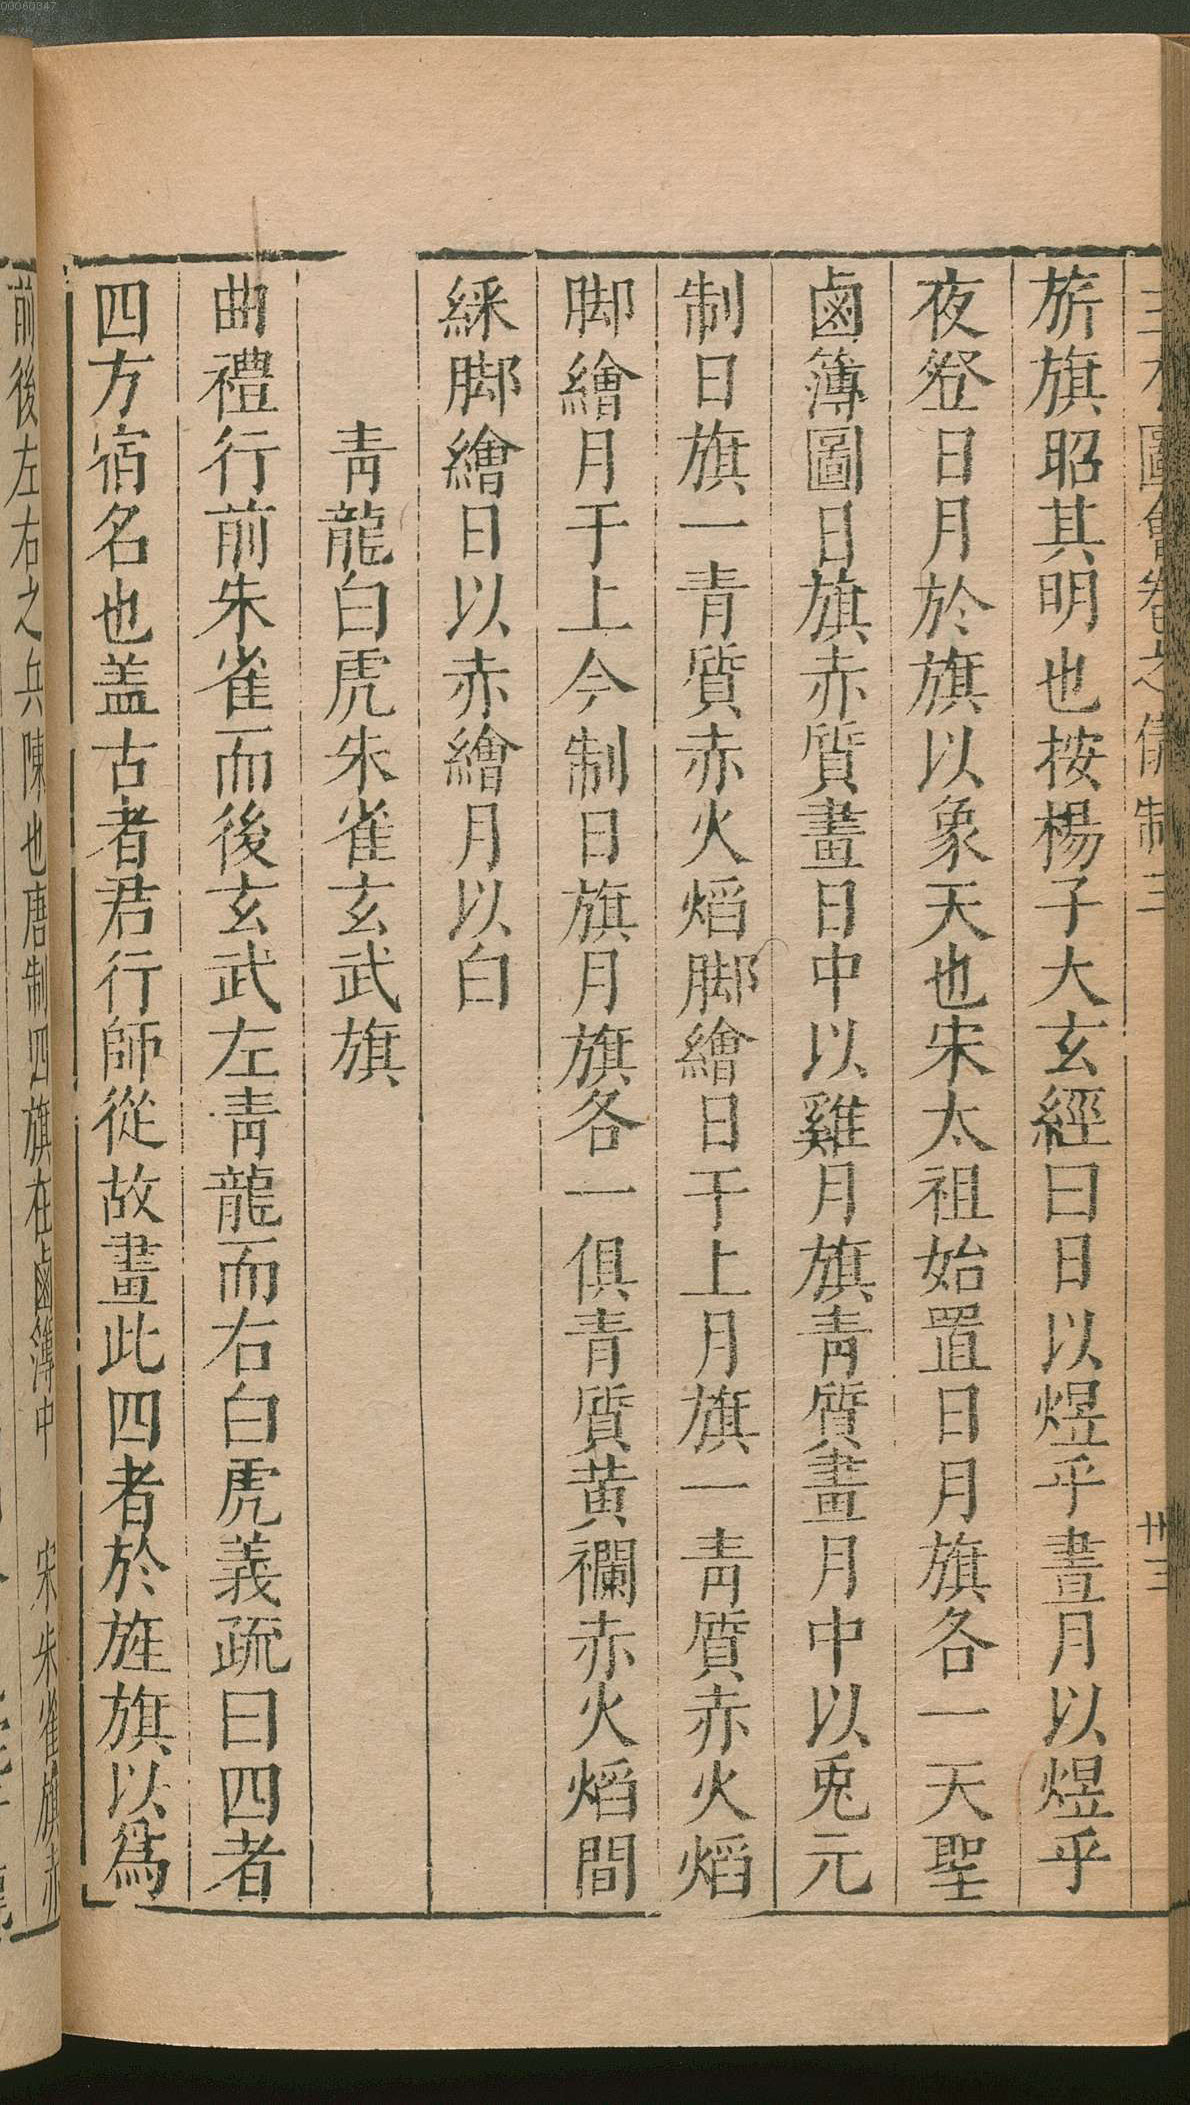 00060347
旂旗昭其明也按楊子大玄經曰日以煜乎晝月以煜乎
夜登日月於旗以象天也宋太祖始置日月旗各一天聖
鹵簿圖日旗赤質畫日中以雞月旗靑質畫月中以兎元
制日旗一青質赤火熖脚繪日于上月旗一靑質赤火熖
脚繪月于上今制日旗月旗各一俱青質黄襴赤火熖間
綵脚繪日以赤繪月以白
靑龍白虎朱雀玄武旗
曲禮行前朱雀而後玄武左靑龍而右白虎義疏曰四者
四方宿名也盖古者君行師從故畫此四者於旌旗以爲
前後左右之兵陳也唐制四旗在鹵簿中 宋朱雀旗赤